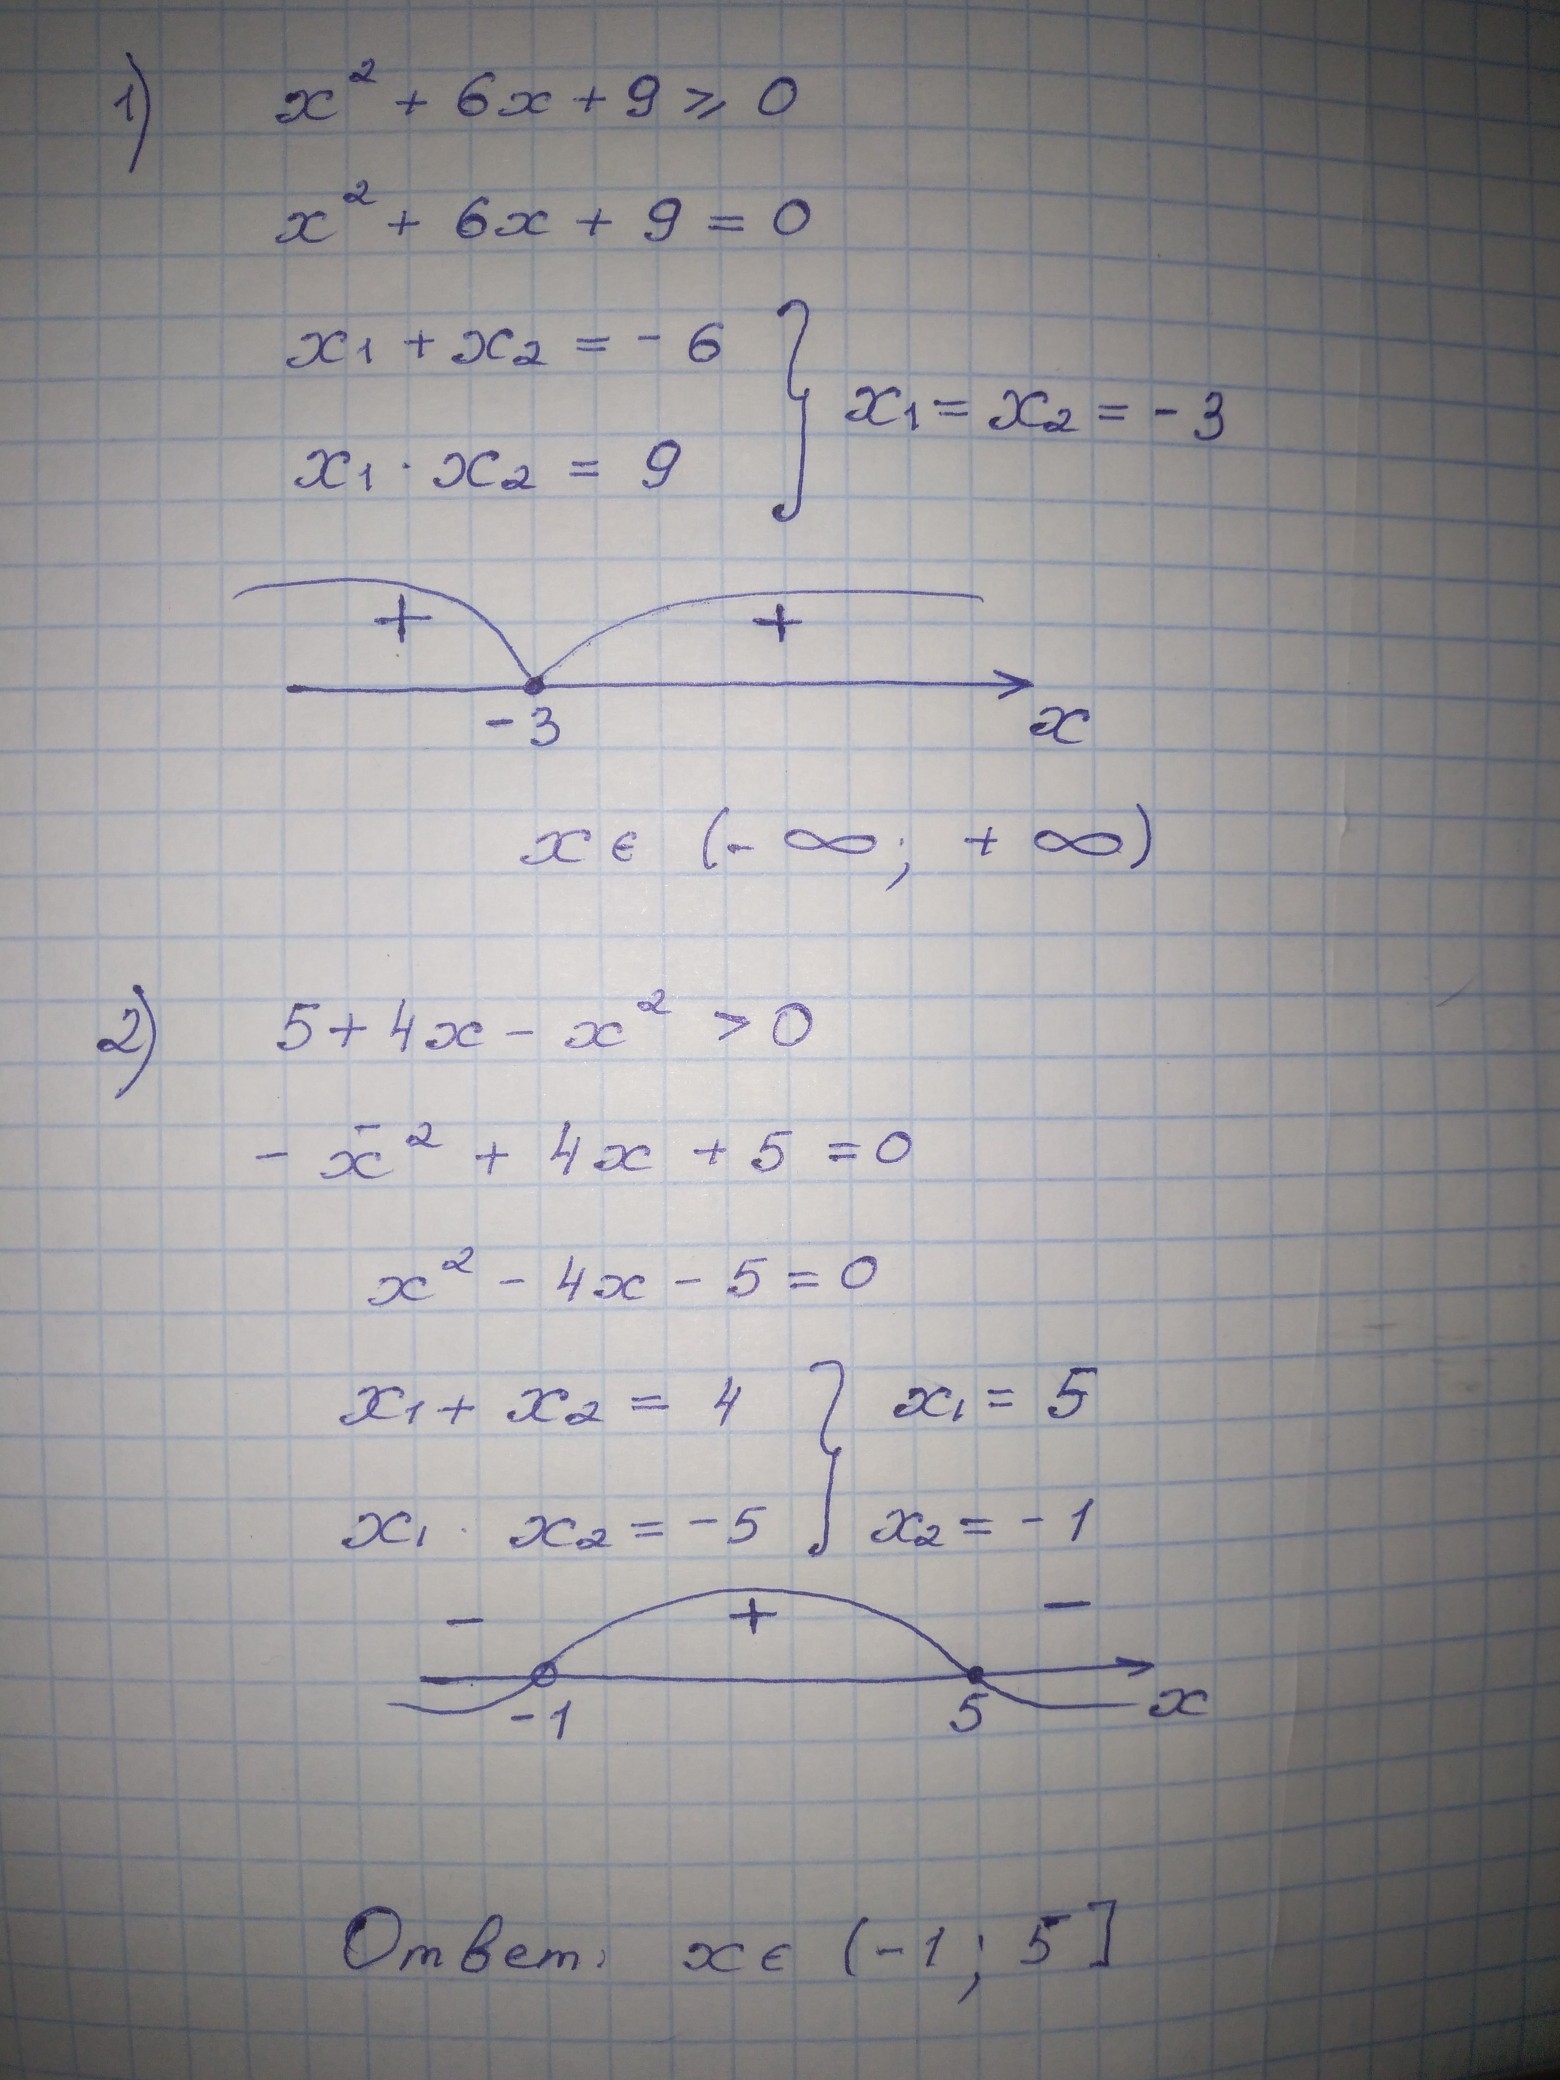 1) x² + 6x + 9 ⩾ 0
x² + 6x + 9 = 0
x1 + x2 = - 6
x1 · x2 = 9
} x1 = x2 = - 3
+ +
- 3 x
x ϵ (- ∞; + ∞)
2) 5 + 4x - x² > 0
- x² + 4x + 5 = 0
x² - 4x - 5 = 0
x1 + x2 = 4 } x1 = 5
x1 · x2 = -5 } x2 = - 1
- + -
-1 5 x
Ответ: x ϵ (-1; 5]